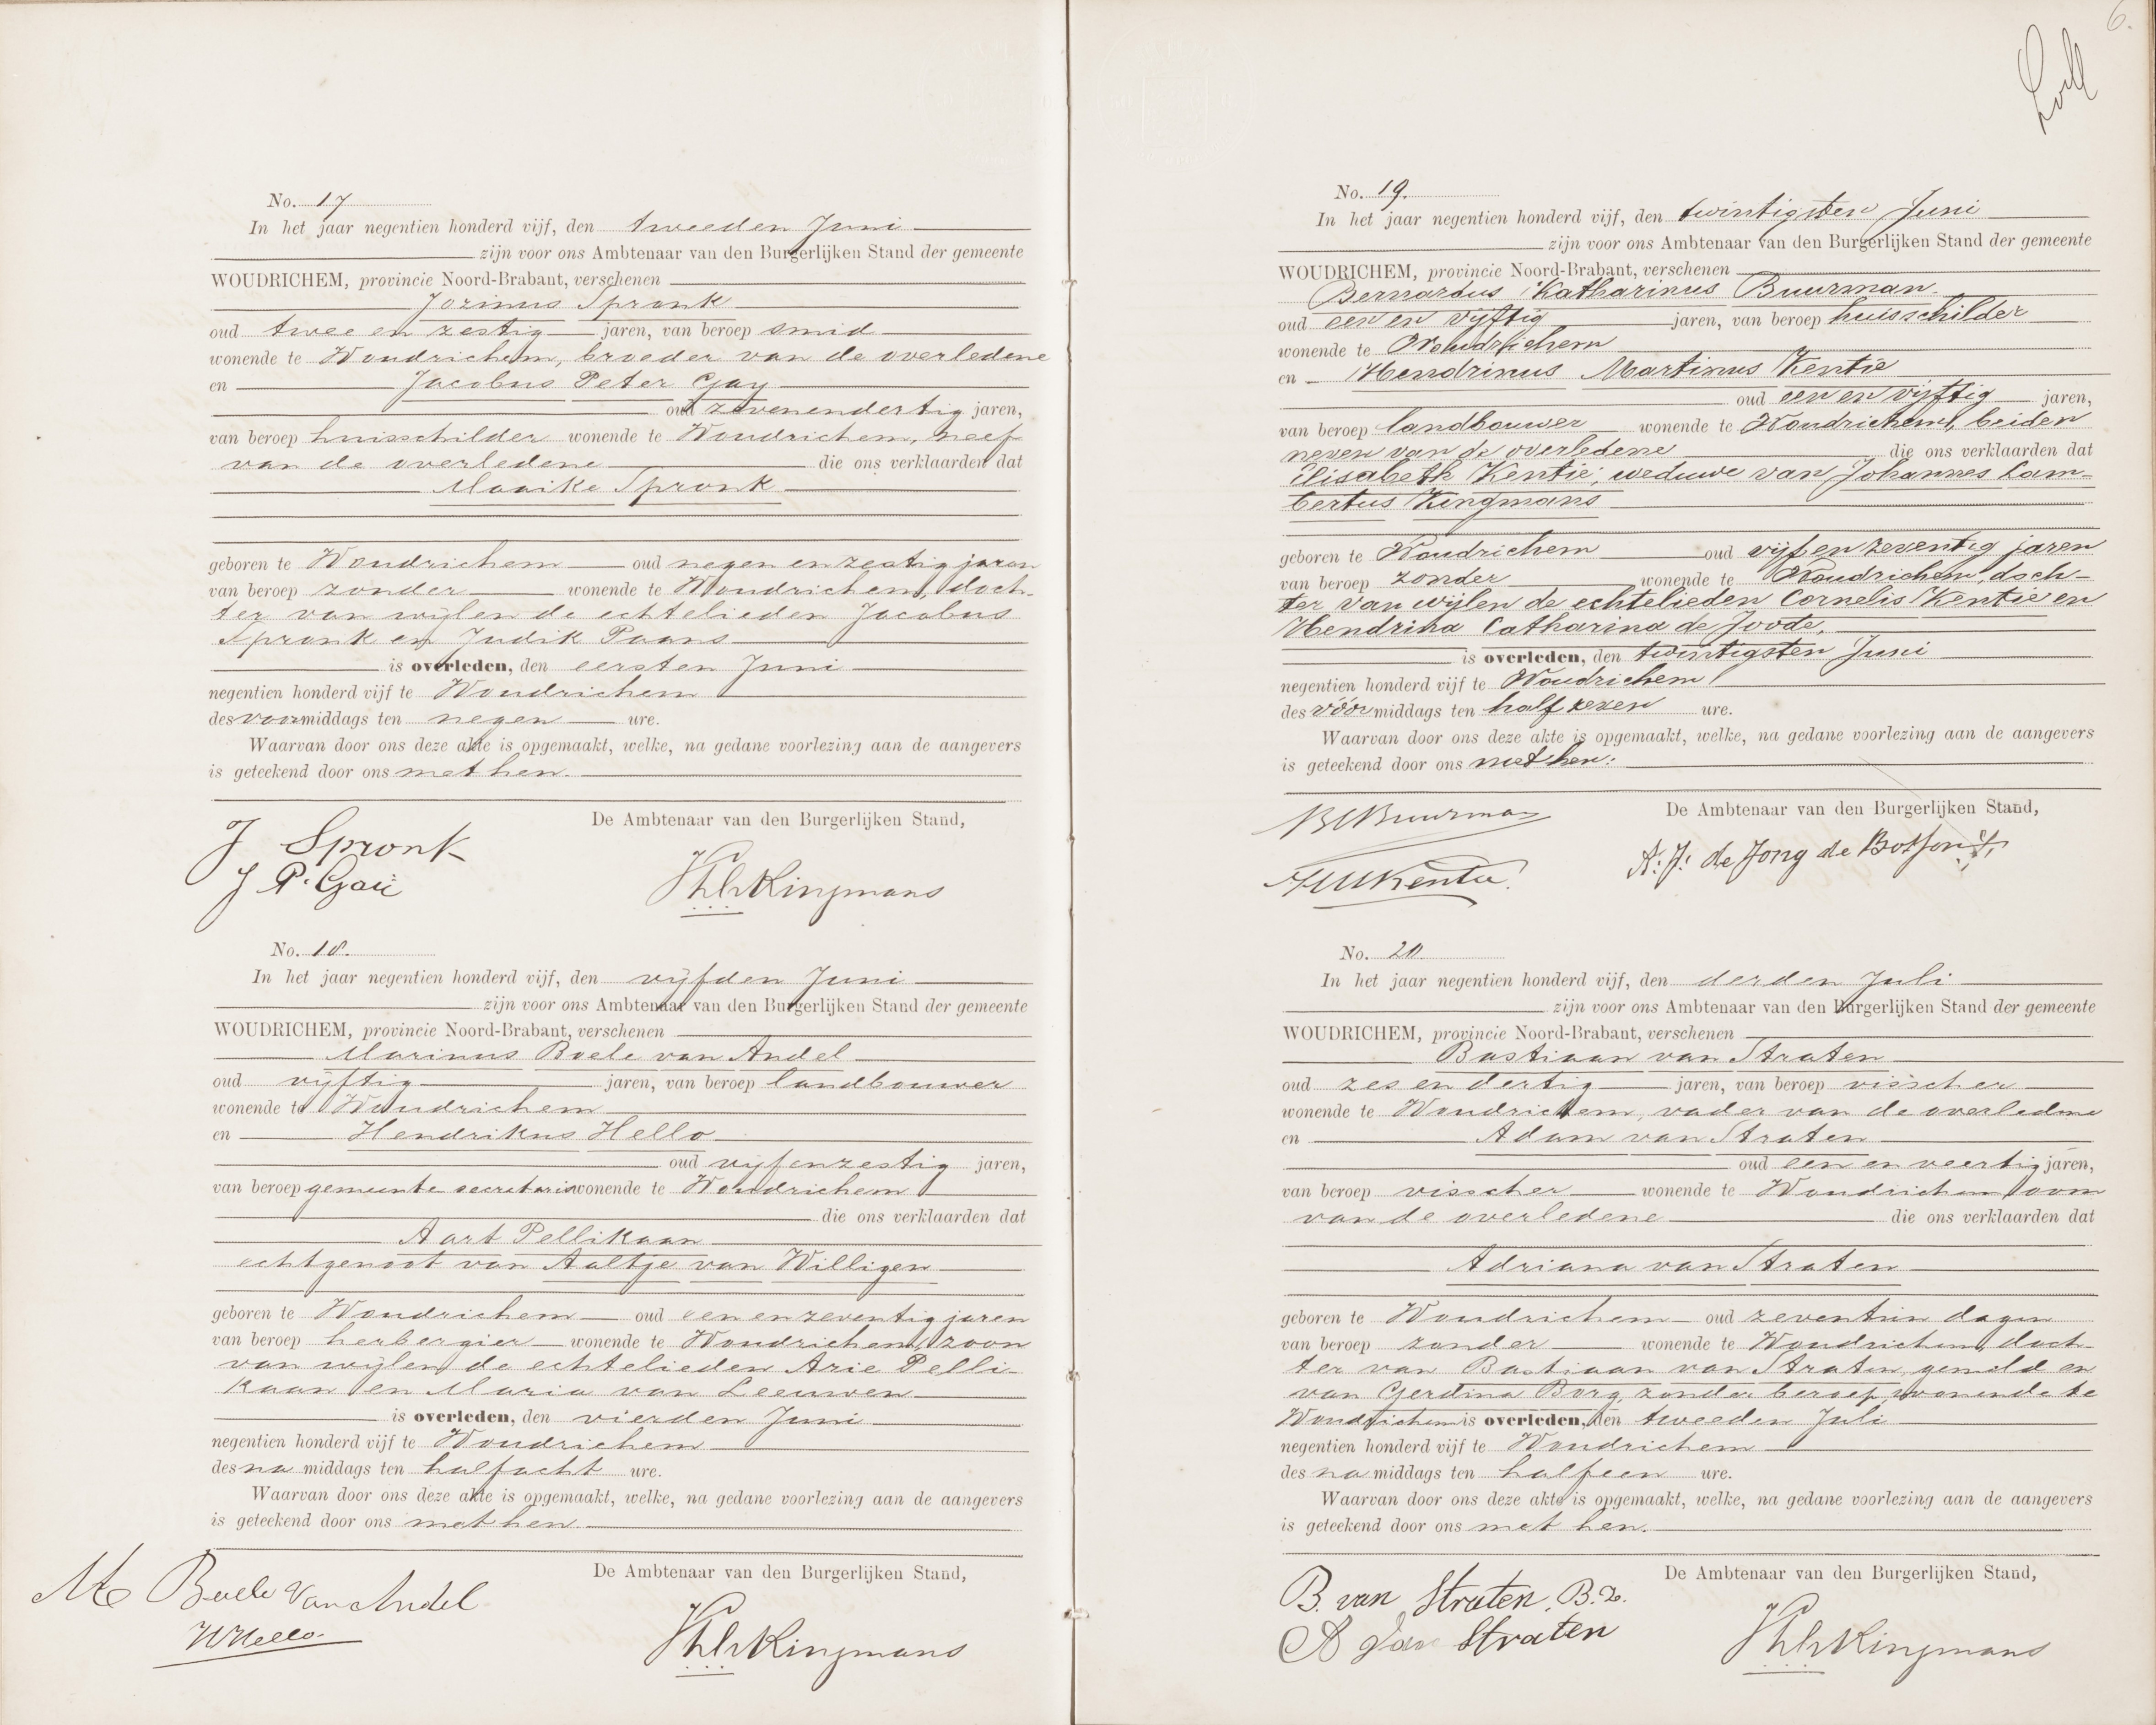 No. 17
In het jaar negentien honderd vijf, den tweeden Juni
zijn voor ons Ambtenaar van den Burgerlijken Stand der gemeente
WOUDRICHEM, provincie Noord-Brabant, verschenen
Jozinus Spronk
oud twee en zestig jaren, van beroep smid
wonende te Woudrichem, broeder van de overledene
en Jacobus Peter Gay
oud zevenendertig jaren,
van beroep huisschilder wonende te Woudrichem, neef
van de overledene die ons verklaarden dat
Maaike Spronk
geboren te Woudrichem oud negen en zestig jaren
van beroep zonder wonende te Woudrichem, doch-
ter van wijlen de echtelieden Jacobus
Spronk en Judik Paans
is overleden, den eersten Juni
negentien honderd vijf te Woudrichem
des voormiddags ten negen ure.
Waarvan door ons deze akte is opgemaakt, welke, na gedane voorlezing aan de aangevers
is geteekend door ons met hen.
De Ambtenaar van den Burgerlijken Stand,
J Spronk
J P. Gaij
Kingmans
No. 18.
In het jaar negentien honderd vijf, den vijfden Juni
zijn voor ons Ambtenaar van den Burgerlijken Stand der gemeente
WOUDRICHEM, provincie Noord-Brabant, verschenen
Marinus Boele van Andel
oud vijftig jaren, van beroep landbouwer
wonende te Woudrichem
en Hendrikus Hello
oud vijfenzestig jaren,
van beroep gemeente secretaris wonende te Woudrichem
die ons verklaarden dat
Aart Pellikaan
echtgenoot van Aaltje van Willigen
geboren te Woudrichem oud een en zeventig jaren
van beroep herbergier wonende te Woudrichem, zoon
van wijlen de echtelieden Arie Pelli-
kaan en Maria van Leeuwen
is overleden, den vierden Juni
negentien honderd vijf te Woudrichem
des na middags ten half acht ure.
Waarvan door ons deze akte is opgemaakt, welke, na gedane voorlezing aan de aangevers
is geteekend door ons met hen.
De Ambtenaar van den Burgerlijken Stand,
M Boele van Andel
HHello
Kingmans
6.
No. 19.
In het jaar negentien honderd vijf, den twintigsten Juni
zijn voor ons Ambtenaar van den Burgerlijken Stand der gemeente
WOUDRICHEM, provincie Noord-Brabant, verschenen
Bernardus Katharinus Buurman
oud een en vijftig jaren, van beroep huisschilder
wonende te Woudrichem
en Hendrinus Martinus Kentie
oud een en vijftig jaren,
van beroep landbouwer wonende te Woudrichem, beiden
neven van de overledene die ons verklaarden dat
Elisabeth Kentie, weduwe van Johannes Lam-
bertus Kingmans
geboren te Woudrichem oud vijf en zeventig jaren
van beroep zonder wonende te Woudrichem, doch-
ter van wijlen de echtelieden Cornelis Kentie en
Hendrina Catharina de Joode,
is overleden, den twintigsten Juni
negentien honderd vijf te Woudrichem
des vóór middags ten half zeven ure.
Waarvan door ons deze akte is opgemaakt, welke, na gedane voorlezing aan de aangevers
is geteekend door ons met hen.
De Ambtenaar van den Burgerlijken Stand,
BKBuurman
HMKentie
de Jong de
No. 20
In het jaar negentien honderd vijf, den derden Juli
zijn voor ons Ambtenaar van den Burgerlijken Stand der gemeente
WOUDRICHEM, provincie Noord-Brabant, verschenen
Bastiaan van Straten
oud zes en dertig jaren, van beroep visscher
wonende te Woudrichem, vader van de overledene
en Adam van Straten
oud een en veertig jaren,
van beroep visscher wonende te Woudrichem, oom
van de overledene die ons verklaarden dat
Adriana van Straten
geboren te Woudrichem oud zeventien dagen
van beroep zonder wonende te Woudrichem, doch-
ter van Bastiaan van Straten, gemeld en
van Gerdina Borg, zonder beroep, wonende te
Woudrichem is overleden, den tweeden Juli
negentien honderd vijf te Woudrichem
des na middags ten half een ure.
Waarvan door ons deze akte is opgemaakt, welke, na gedane voorlezing aan de aangevers
is geteekend door ons met hen.
De Ambtenaar van den Burgerlijken Stand,
B. van Straten. B.z.
A van Straten
Kingmans